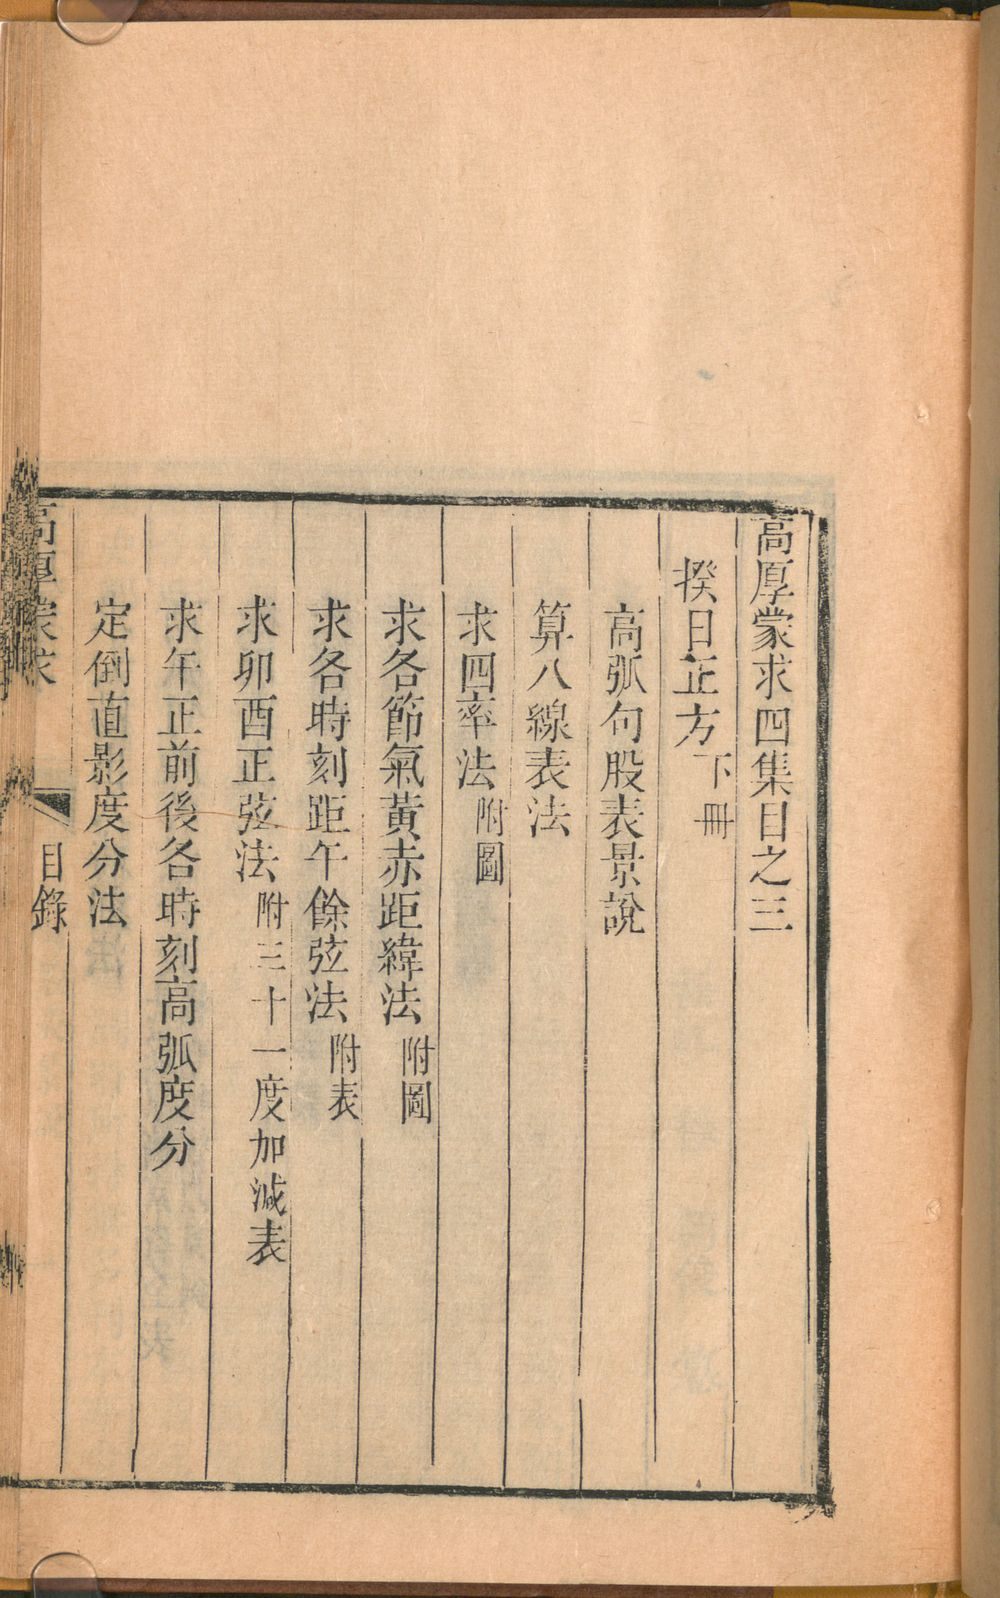 高厚蒙求四集目之三
揆日正方下冊
高弧句股表景說
算八線表法
求四率法附圖
求各節氣黃赤距緯法附圖
求各時刻距午餘弦法附表
求卯酉正弦法附三十一度加減表
求午正前後各時刻高弧度分
定倒直影度分法
高厚蒙求 目錄